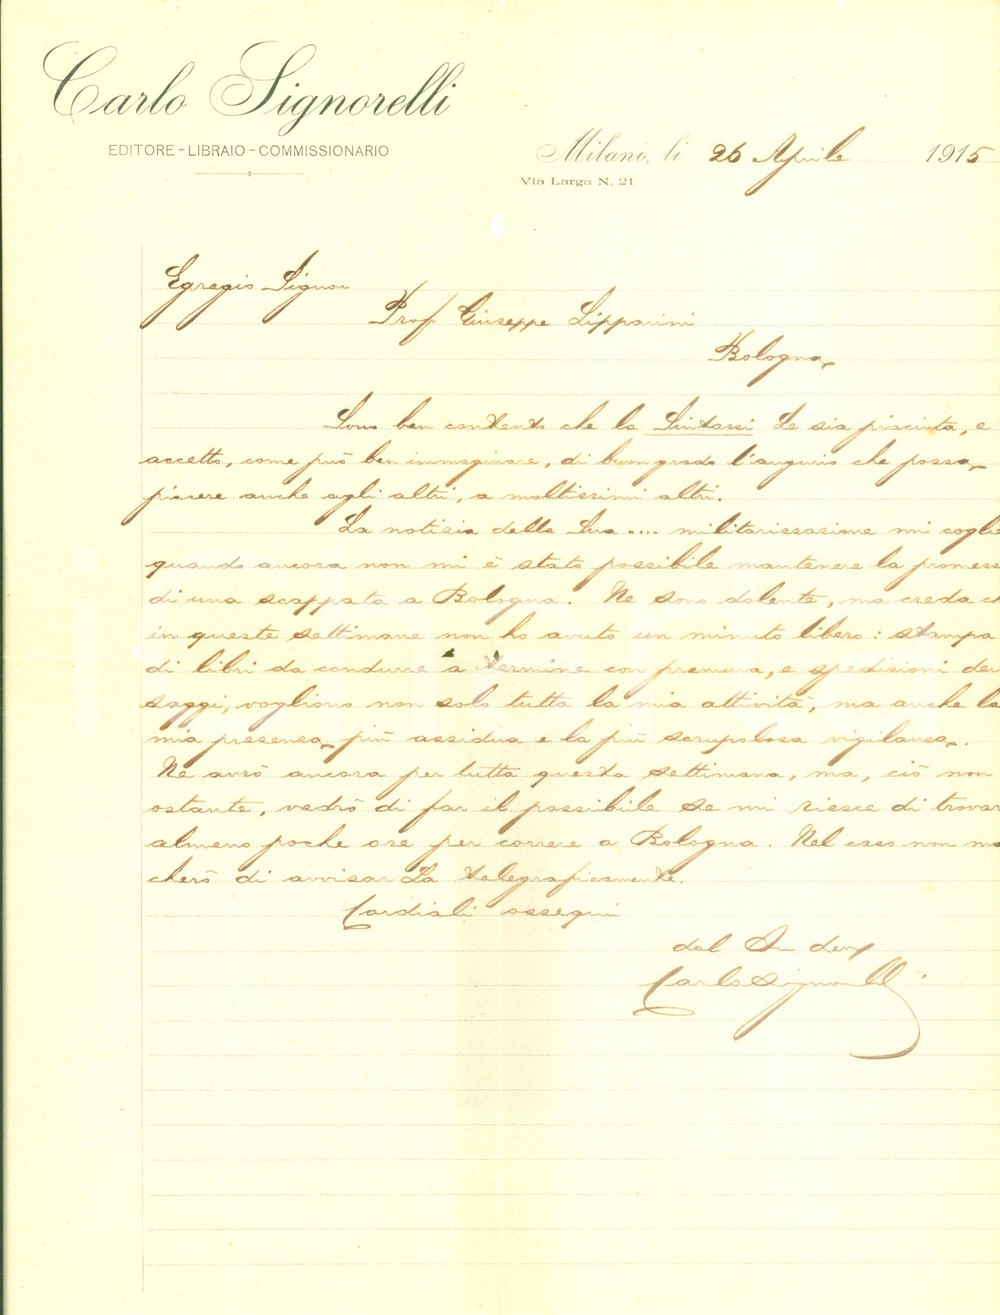 Carlo Signorelli
EDITORE - LIBRAIO - COMMISSIONARIO
Milano, li 26 Aprile 1915
Via Larga N. 21
Egregio Signor
Prof Giuseppe Lipparini
Bologna
Sono ben contento che la Sintassi Le sia piaciuta, e
accetto, come può ben immaginare, di buon grado l'augurio che possa
piacere anche agli altri, a moltissimi altri.
La notizia della Sua .... militarizzazione mi coglie
quando ancora non mi è stato possibile mantenere la promess
di una scappata a Bologna. Ne sono dolente, ma creda c
in queste settimane non ho avuto un minuto libero: stampa
di libri da condurre a termine con premura, e spedizioni dei
saggi, vogliono non solo tutta la mia attività, ma anche la
mia presenza più assidua e la più scrupolosa vigilanza.
Ne avrò ancora per tutta questa settimana, ma, ciò non
ostante, vedrò di far il possibile se mi riesce di trovar
almeno poche ore per correre a Bologna. Nel caso non ma
cherò di avvisarLa telegraficamente.
Cordiali ossequi
dal Su dev
Carlo Signorelli